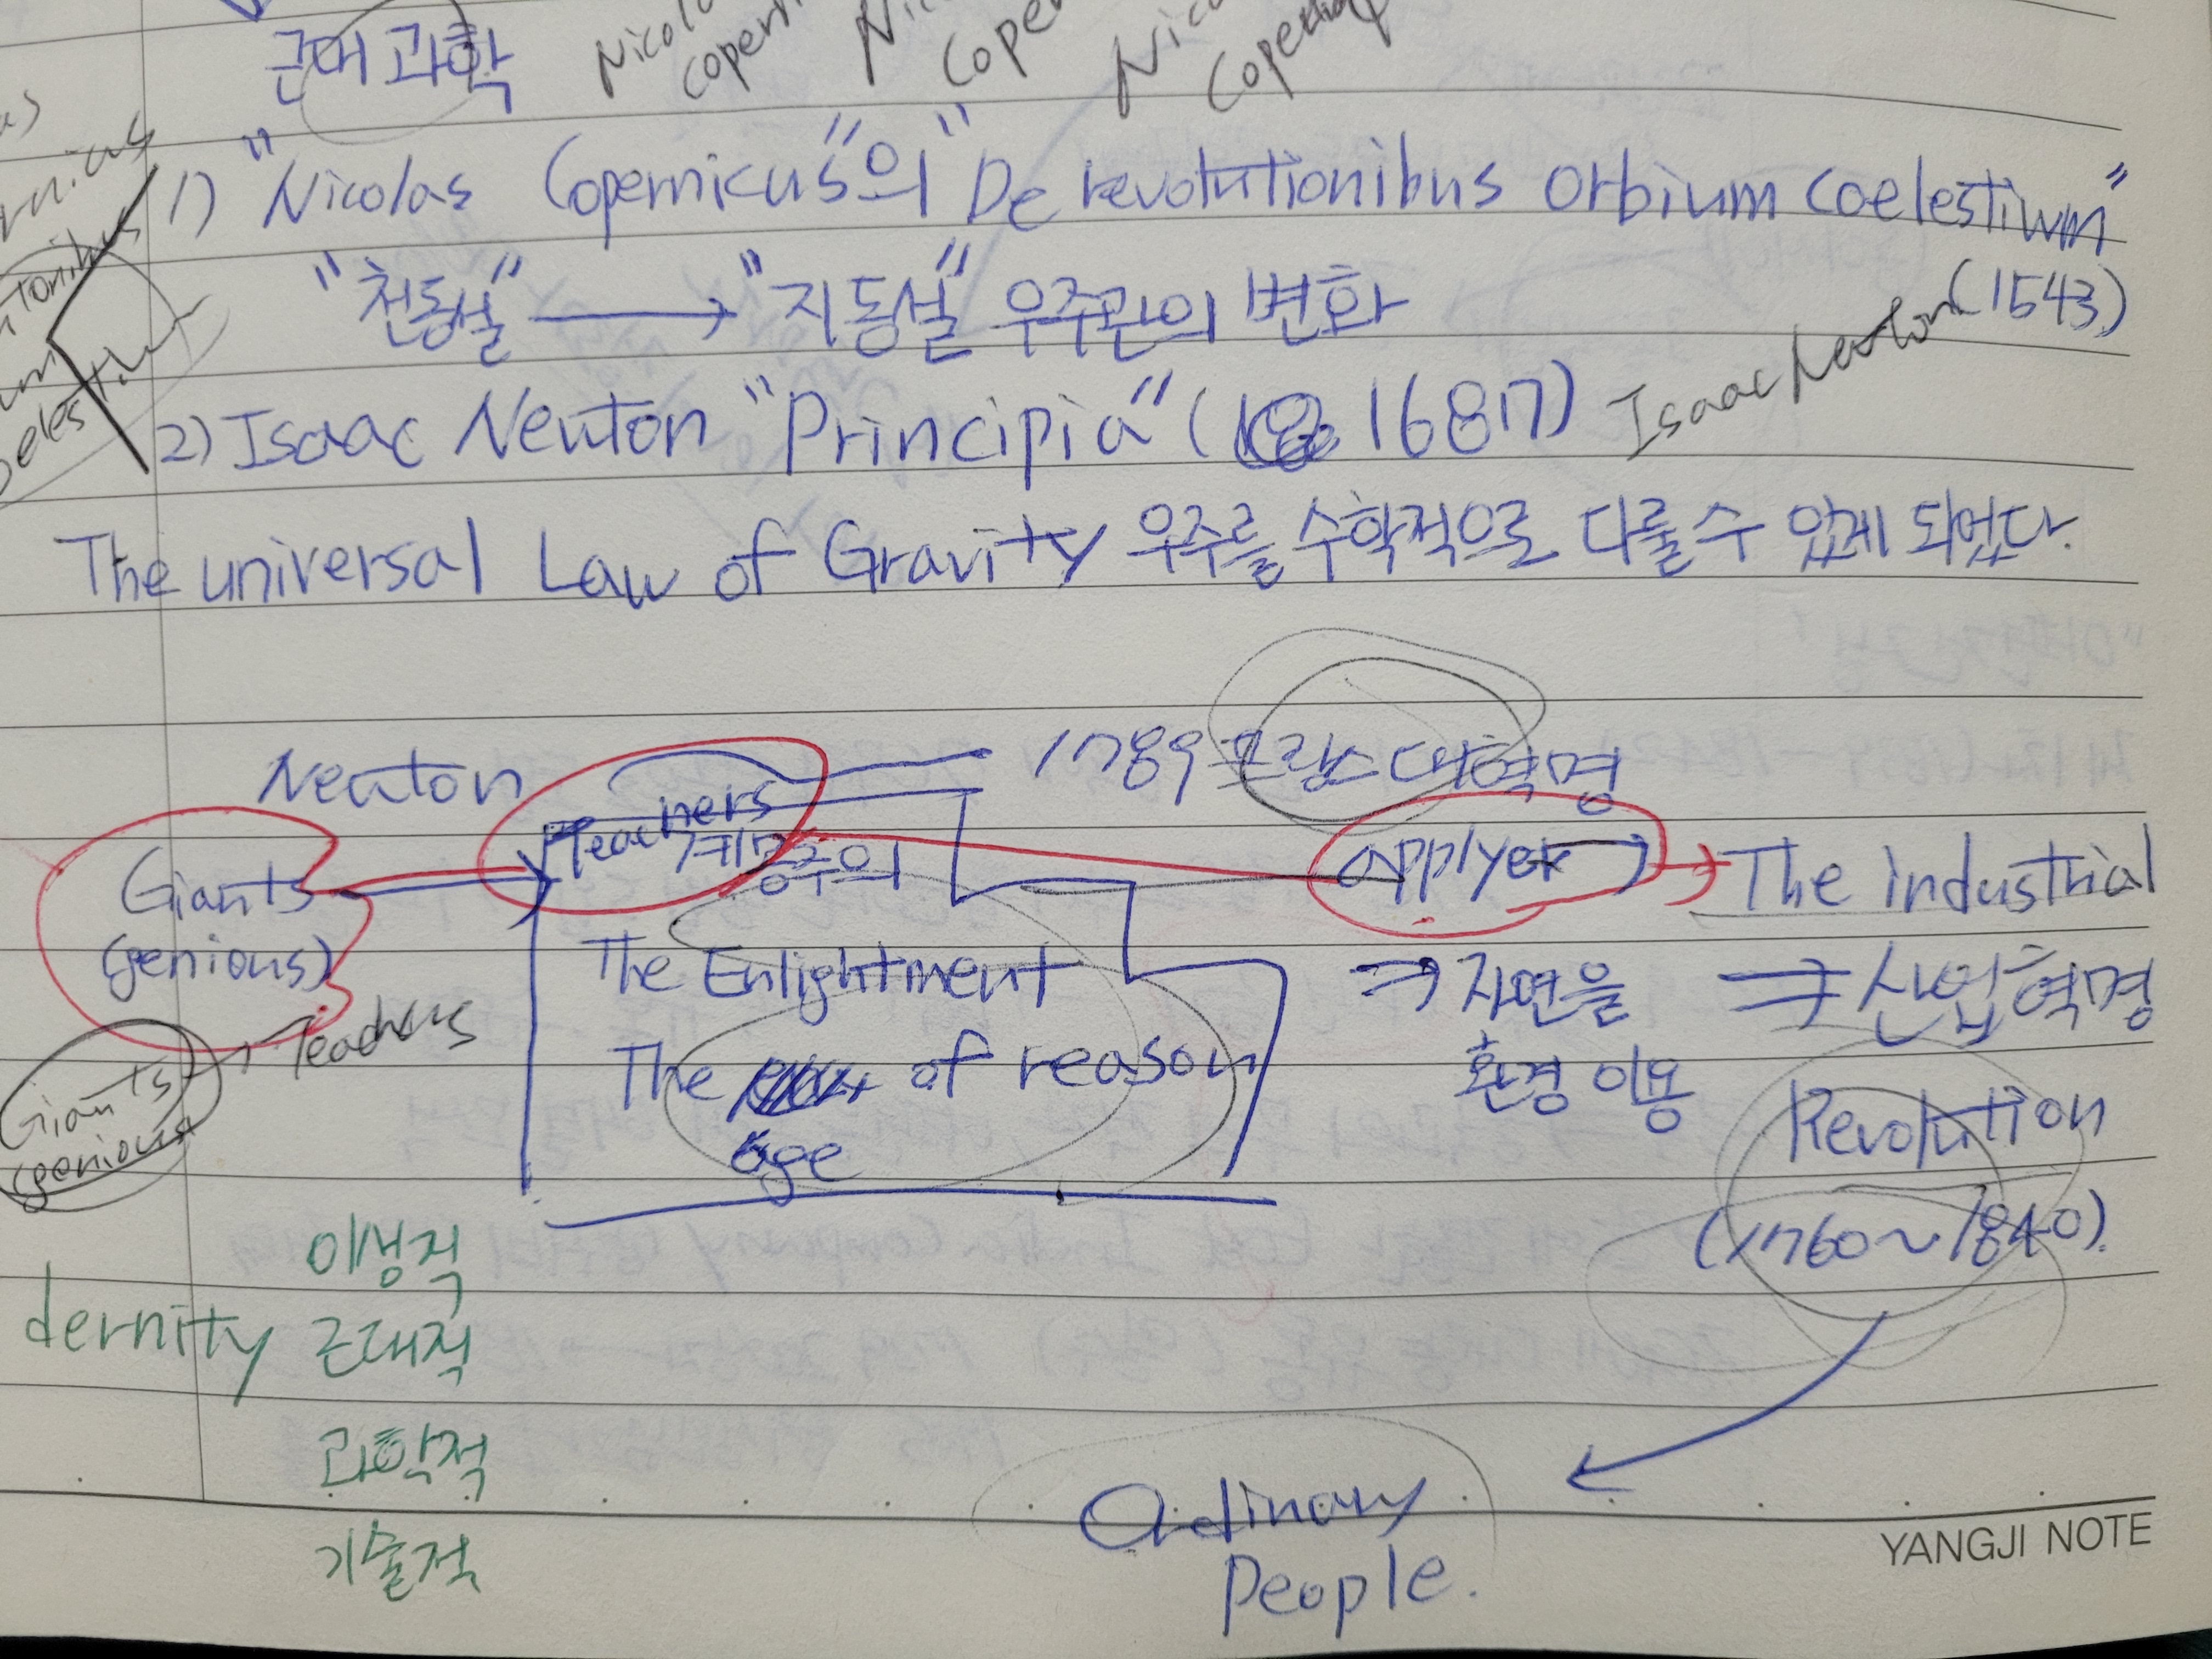 근대 과학
1) "Nicolas Copernicus"의 "De revolutionibus orbium coelestium"
(1543)
"천동설" → "지동설" 우주관의 변화
2) Isaac Newton "Principia" ( 1687) Isaac Newton
The universal Law of Gravity 우주를 수학적으로 다룰 수 있게 되었다.
Newton
1789 프랑스 대혁명
Giants
(genious)
Teachers
계몽주의
applyer
The industrial
The Enlightment
⇒ 자연을
환경 이용
⇒ 산업혁명
The of reason
age
Revolution
(1760~1840).
Giants → Teachers
(genious
dernity
이성적
근대적
과학적
기술적
Ordinary
People.
YANGJI NOTE